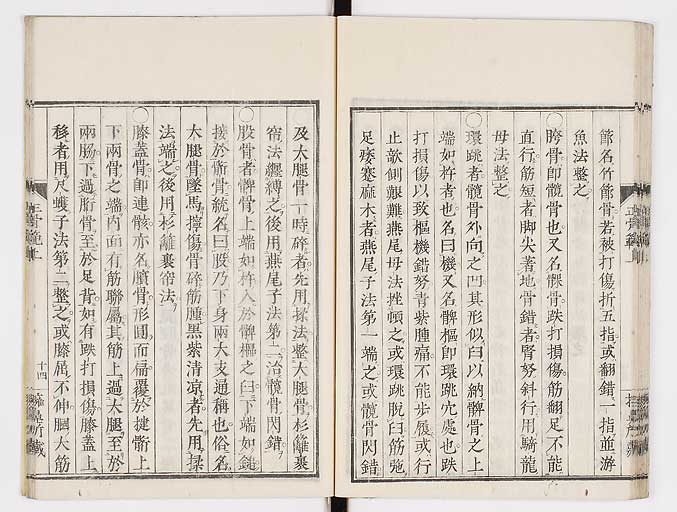 節名竹節骨若被打傷折五指或翻錯一指並游
魚法整之
〇胯骨即髖骨也又名髁骨跌打損傷筋翻足不能
直行筋短者脚尖著地骨錯者臀努斜行用騎龍
母法整之
〇環跳者髖骨外向之凹其形似臼以納髀骨之上
端如杵者也名曰機又名髀樞即環跳宂處也跌
打損傷以致樞機錯努青紫腫痛不能步履或行
止欹側艱難燕尾母法挫頓之或環跳脫臼筋弛
足痿蹇麻木者燕尾子法第一端之或髖骨閃錯
及大腿骨一時碎者先用揉法整大腿骨杉籬裹
帘法纏縛之後用燕尾子法第二治髖骨閃錯
〇股骨者髀骨上端如杵入於髀樞之臼下端如鎚
接於䯒骨統名曰股乃下身兩大支通稱也俗名
大腿骨墜馬擰傷骨碎筋腫黑紫清凉者先用揉
法端之後用杉離裹帘法
〇膝蓋骨即連骸亦名臏骨形圓而福覆於揵䯒上
下兩骨之端內面有筋聯屬其筋上過大腿至於
兩肠下過胻骨至於足背如有跌打損傷膝蓋上
移者用尺蠖子法第二整之或膝屈不伸膕大筋
正骨範上
十四